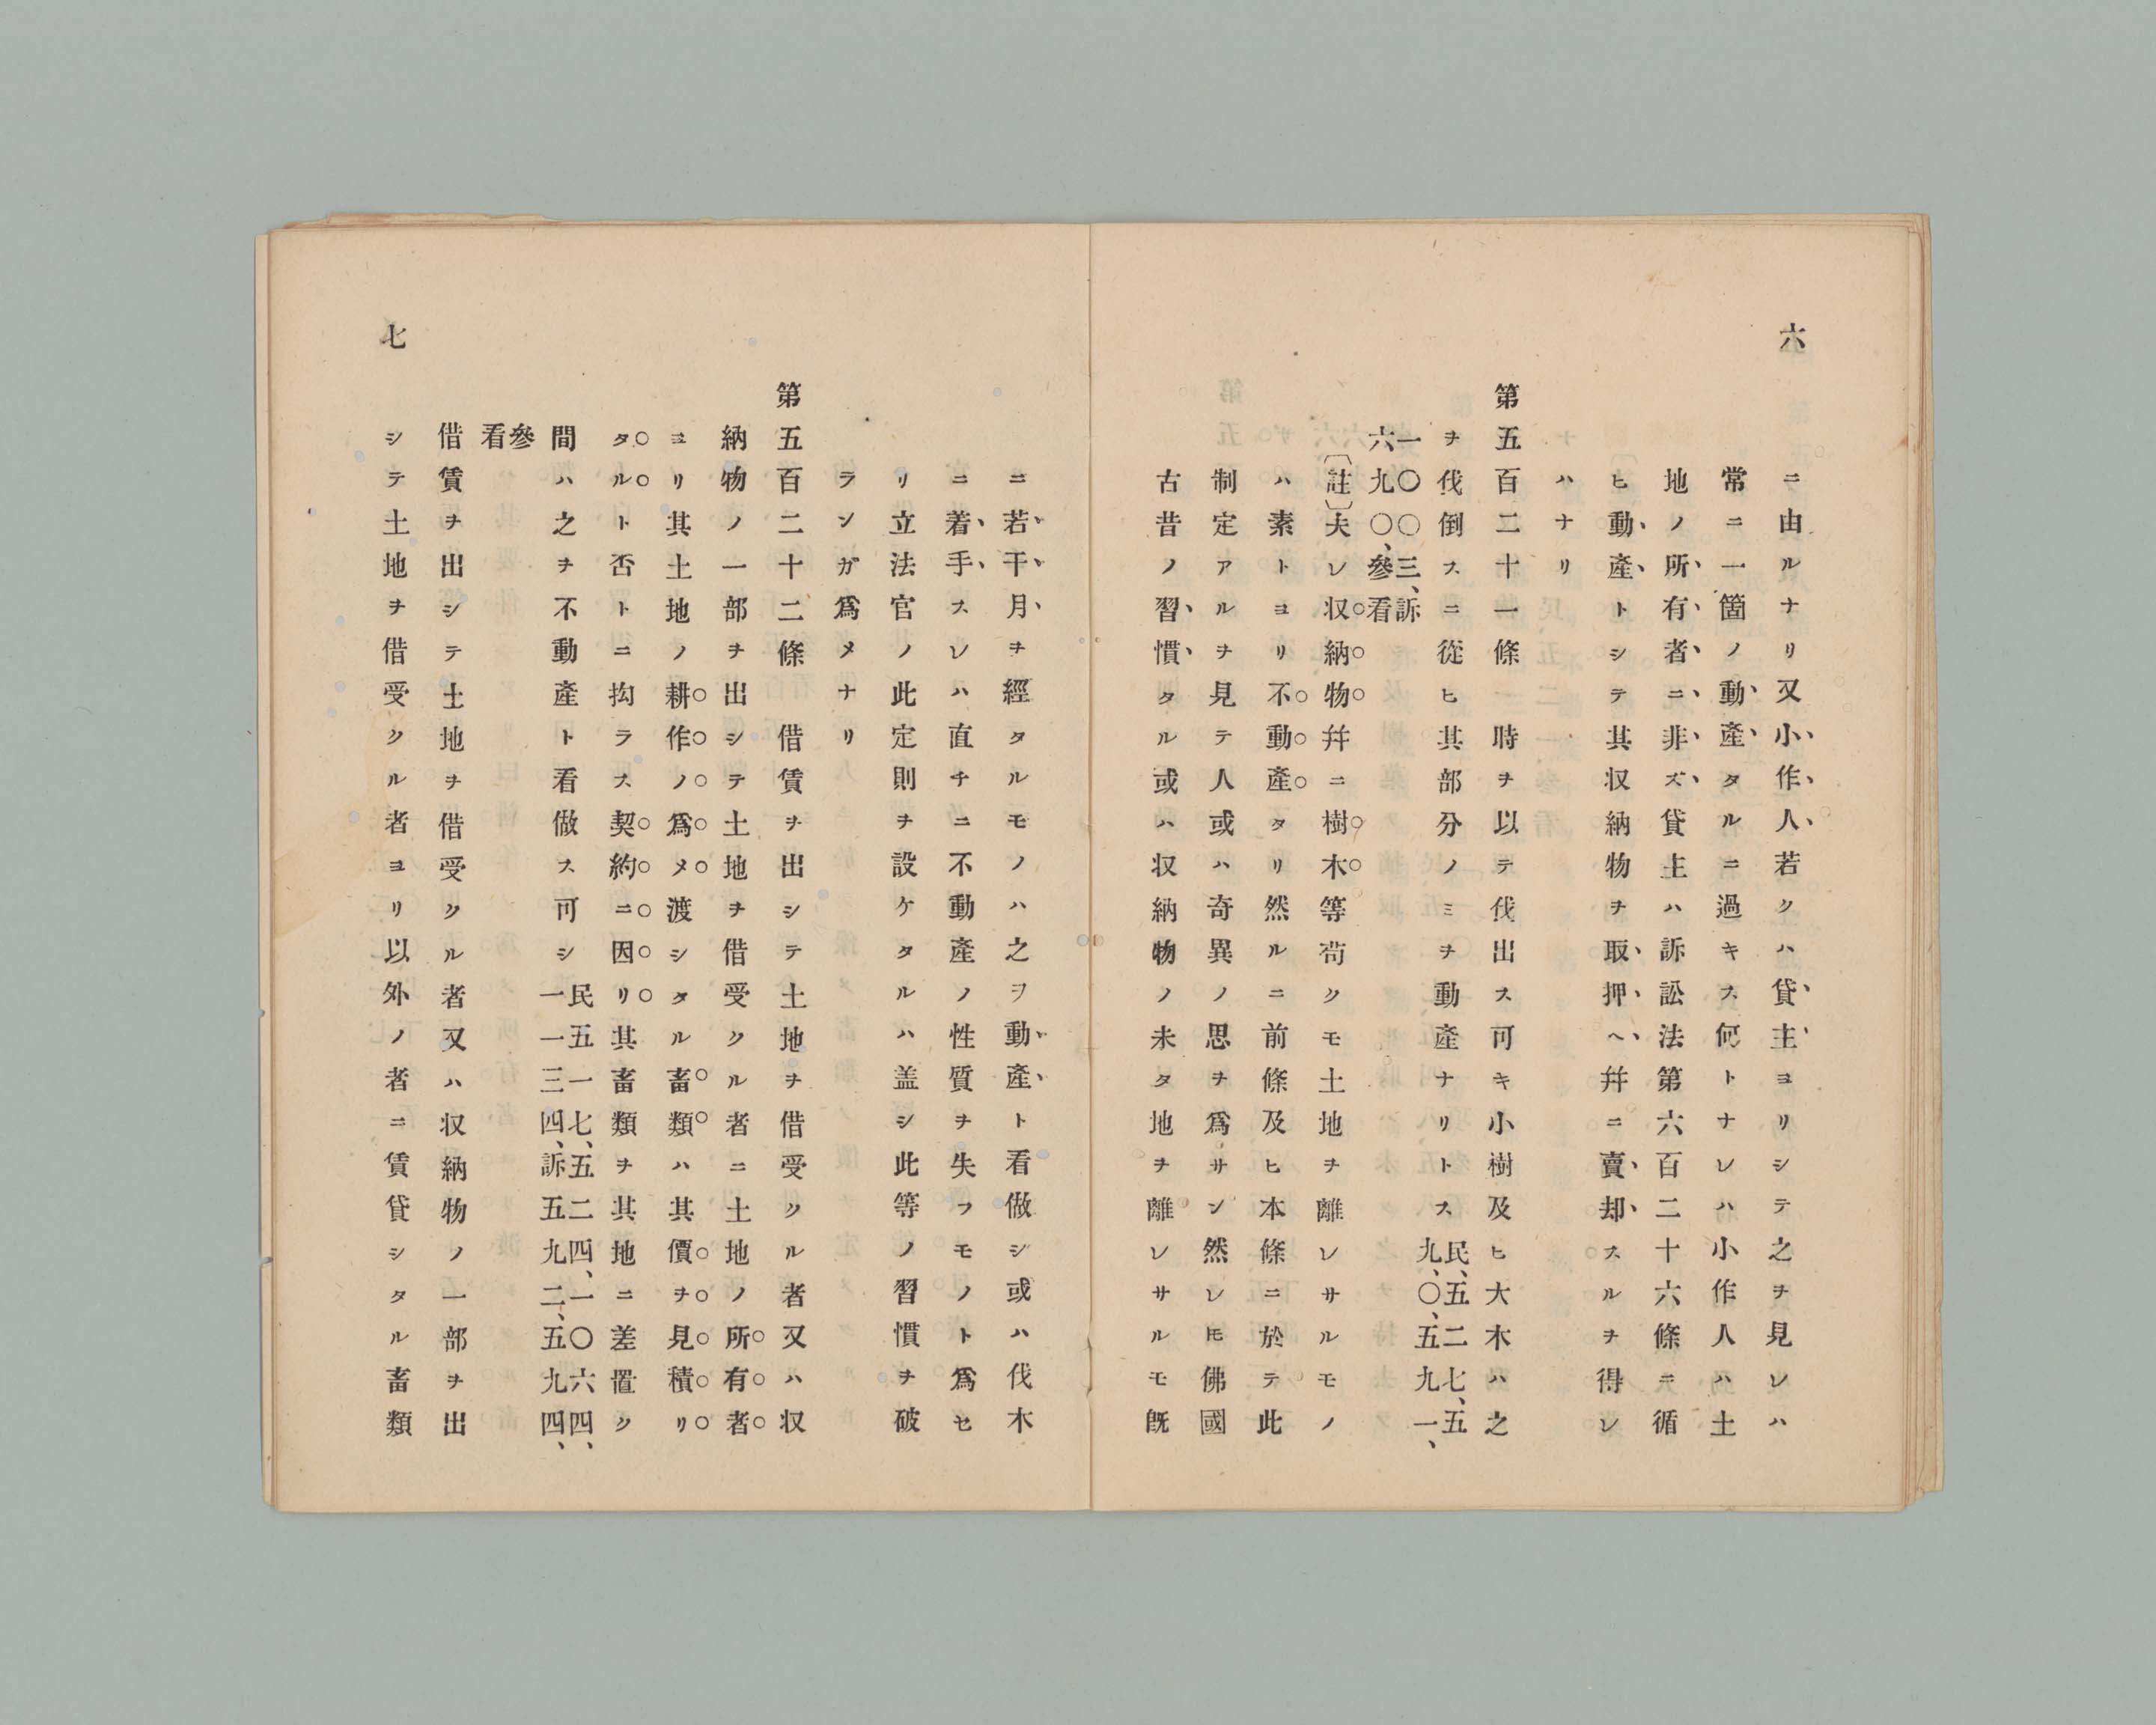 六
ニ由ルナリ又小作人若クハ貸主ヨリシテ之ヲ見レハ
常ニ一箇ノ動產タルニ過キス何トナレハ小作人ハ土
地ノ所有者ニ非ズ貸主ハ訴訟法第六百二十六條ニ循
ヒ動產トシテ其収納物ヲ取押ヘ幷ニ賣却スルヲ得レ
ハナリ
第五百二十一條 一時ヲ以テ伐出ス可キ小樹及ヒ大木ハ之
ヲ伐倒スニ從ヒ其部分ノミヲ動產ナリトス民、五二七、五
九、〇、五九一、
一〇〇三、訴
六九〇、參看
〔註〕夫レ収納物幷ニ樹木等苟クモ土地ヲ離レサルモノ
ハ素トヨリ不動產タリ然ルニ前條及ヒ本條ニ於テ此
制定アルヲ見テ人或ハ奇異ノ思ヲ爲サン然レ𪜈佛國
古昔ノ習慣タル或ハ収納物ノ未タ地ヲ離レサルモ既
ニ若干月ヲ經タルモノハ之ヲ動產ト看做シ或ハ伐木
ニ着手スレハ直チニ不動產ノ性質ヲ失フモノト爲セ
リ立法官ノ此定則ヲ設ケタルハ盖シ此等ノ習慣ヲ破
ランガ爲メナリ
第五百二十二條 借賃ヲ出シテ土地ヲ借受クル者又ハ収
納物ノ一部ヲ出シテ土地ヲ借受クル者ニ土地ノ所有者
ヨリ其土地ノ耕作ノ爲メ渡シタル畜類ハ其價ヲ見積リ
タルト否トニ拘ラス契約ニ因リ其畜類ヲ其地ニ差置ク
間ハ之ヲ不動產ト看做ス可シ民五一七、五二四、一〇六四、
一一三四、訴五九二、五九四、
參
看
借賃ヲ出シテ土地ヲ借受クル者又ハ収納物ノ一部ヲ出
シテ土地ヲ借受クル者ヨリ以外ノ者ニ賃貸シタル畜類
七